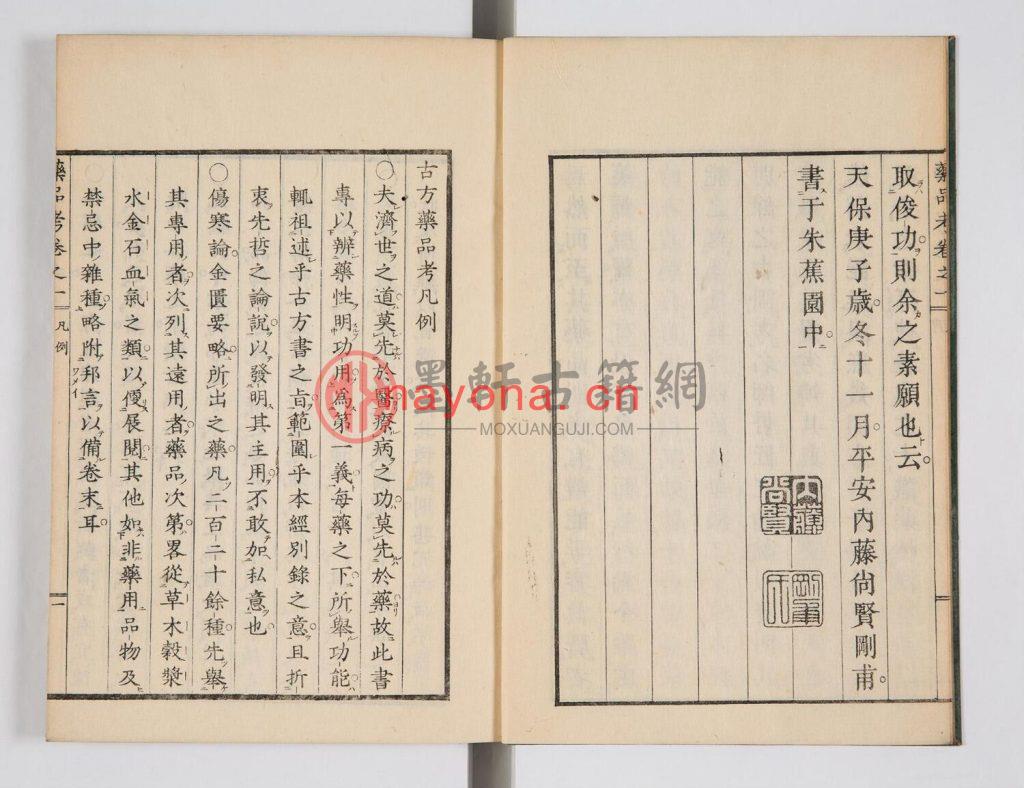 藥品考卷之一
取俊功則余之素願也云
天保庚子歲冬十一月平安內藤尙賢剛甫
書于朱蕉園中
內藤尙賢
古方藥品考凡例
○夫濟世之道莫先於醫療病之功莫先於藥故此書
專以辨藥性明功用爲第一義每藥之下所擧功能
輒祖述乎古方書之旨範圍乎本經別錄之意且折
衷先哲之論說以發明其主用不敢加私意也
○傷寒論金匱要略所出之藥凡二百二十餘種先擧
其專用者次列其遠用者藥品次第畧從草木穀漿
水金石血氣之類以便展閱其他如非藥用品物及
禁忌中雜種略附邦言以備卷末耳
ワメイ
藥品考卷之一
凡例
一
墨軒古籍網
mayona.cn
MOXUANGUJI.COM